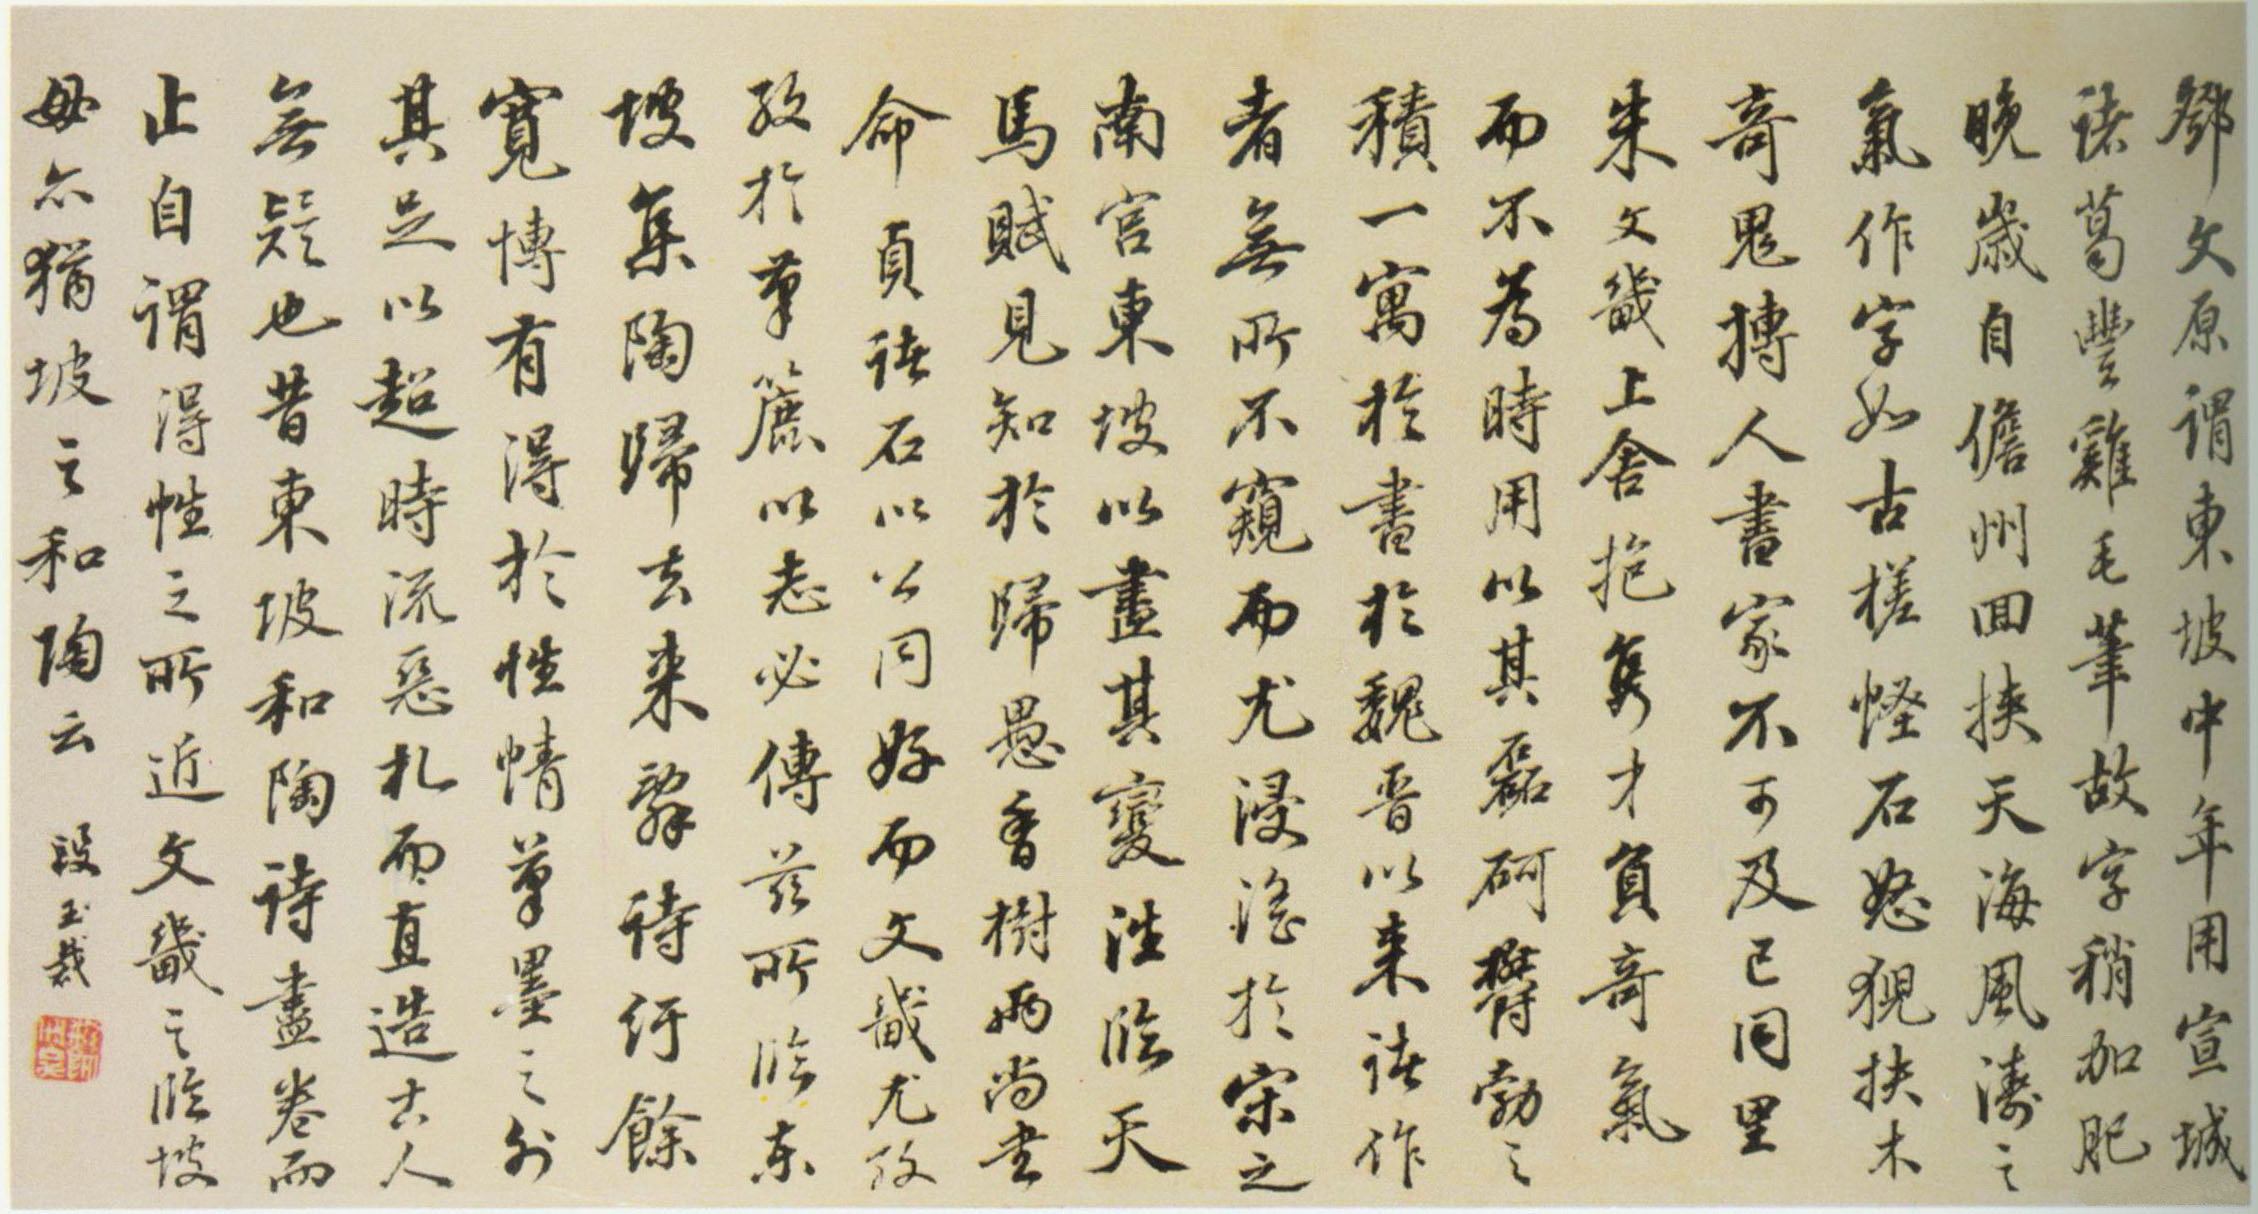 鄧文原謂東坡中年用宣城
諸葛豐雞毛筆故字稍加肥
晚歲自儋州回挾天海風濤之
氣作字如古槎怪石怒猊扶木
奇鬼搏人書家不可及已同里
朱文畿上舍抱雋才負奇氣
而不為時用以其磊砢欝勃之
積一寓於書於魏晋以来諸作
者無所不窺而尤浸淫於宋之
南宫東坡以盡其變法臨天
馬賦見知於歸愚香樹兩尚書
命貞諸石以公同好而文畿尤孜
孜於筆簏以老必傳茲所臨東
坡集陶歸去来辭詩紆餘
寬博有得於性情筆墨之外
其足以超時流惡札而直造古人
無疑也昔東坡和陶詩盡卷而
止自謂得性之所近文畿之臨坡
毋亦猶坡之和陶云 段玉裁